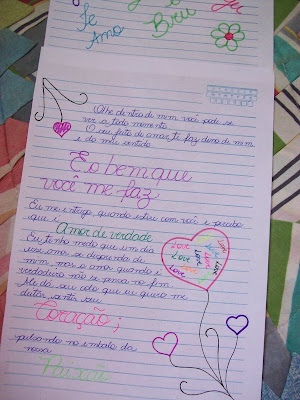 Te
Amo
Bieu
Olhe dentro de mim você pode se
ver a todo momento
O seu jeito de amar te faz dona de mim
e do meu sentido
E o bem que
você me faz
Eu me entrego, quando estou com você e percebo
que é
Amor de verdade
Eu tenho medo que um dia
esse amor se desprenda de
mim, mas o amor quando é
verdadeiro não se pensa no fim
Me dá seu colo que eu quero me
deitar, sentir seu
Coração;
pulsando no embalo da
nossa
Paixão
Love
Love
Love
Love